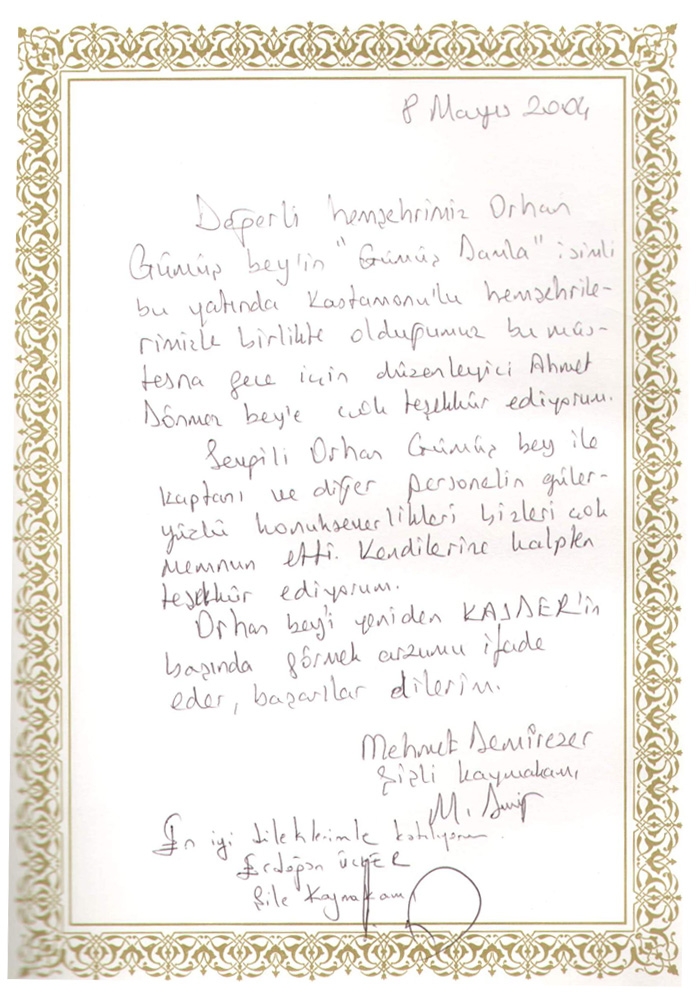 8 Mayıs 2004
Değerli hemşehrimiz Orhan
Gümüş bey'in "Gümüş Damla" isimli
bu yatında Kastamonu'lu hemşehrile-
rimizle birlikte olduğumuz bu müs-
tesna gece için düzenleyici Ahmet
Dönmez bey'e çok teşekkür ediyorum.
Sevgili Orhan Gümüş bey ile
kaptanı ve diğer personelin güler-
yüzlü konukseverlikleri bizleri çok
memnun etti. Kendilerine kalpten
teşekkür ediyorum.
Orhan bey'i yeniden KASDER'in
başında görmek arzumu ifade
eder, başarılar dilerim.
Mehmet Demirezer
Şişli kaymakamı
En iyi dileklerimle katılıyorum.
Erdoğan ÜLKER
Şile Kaymakamı